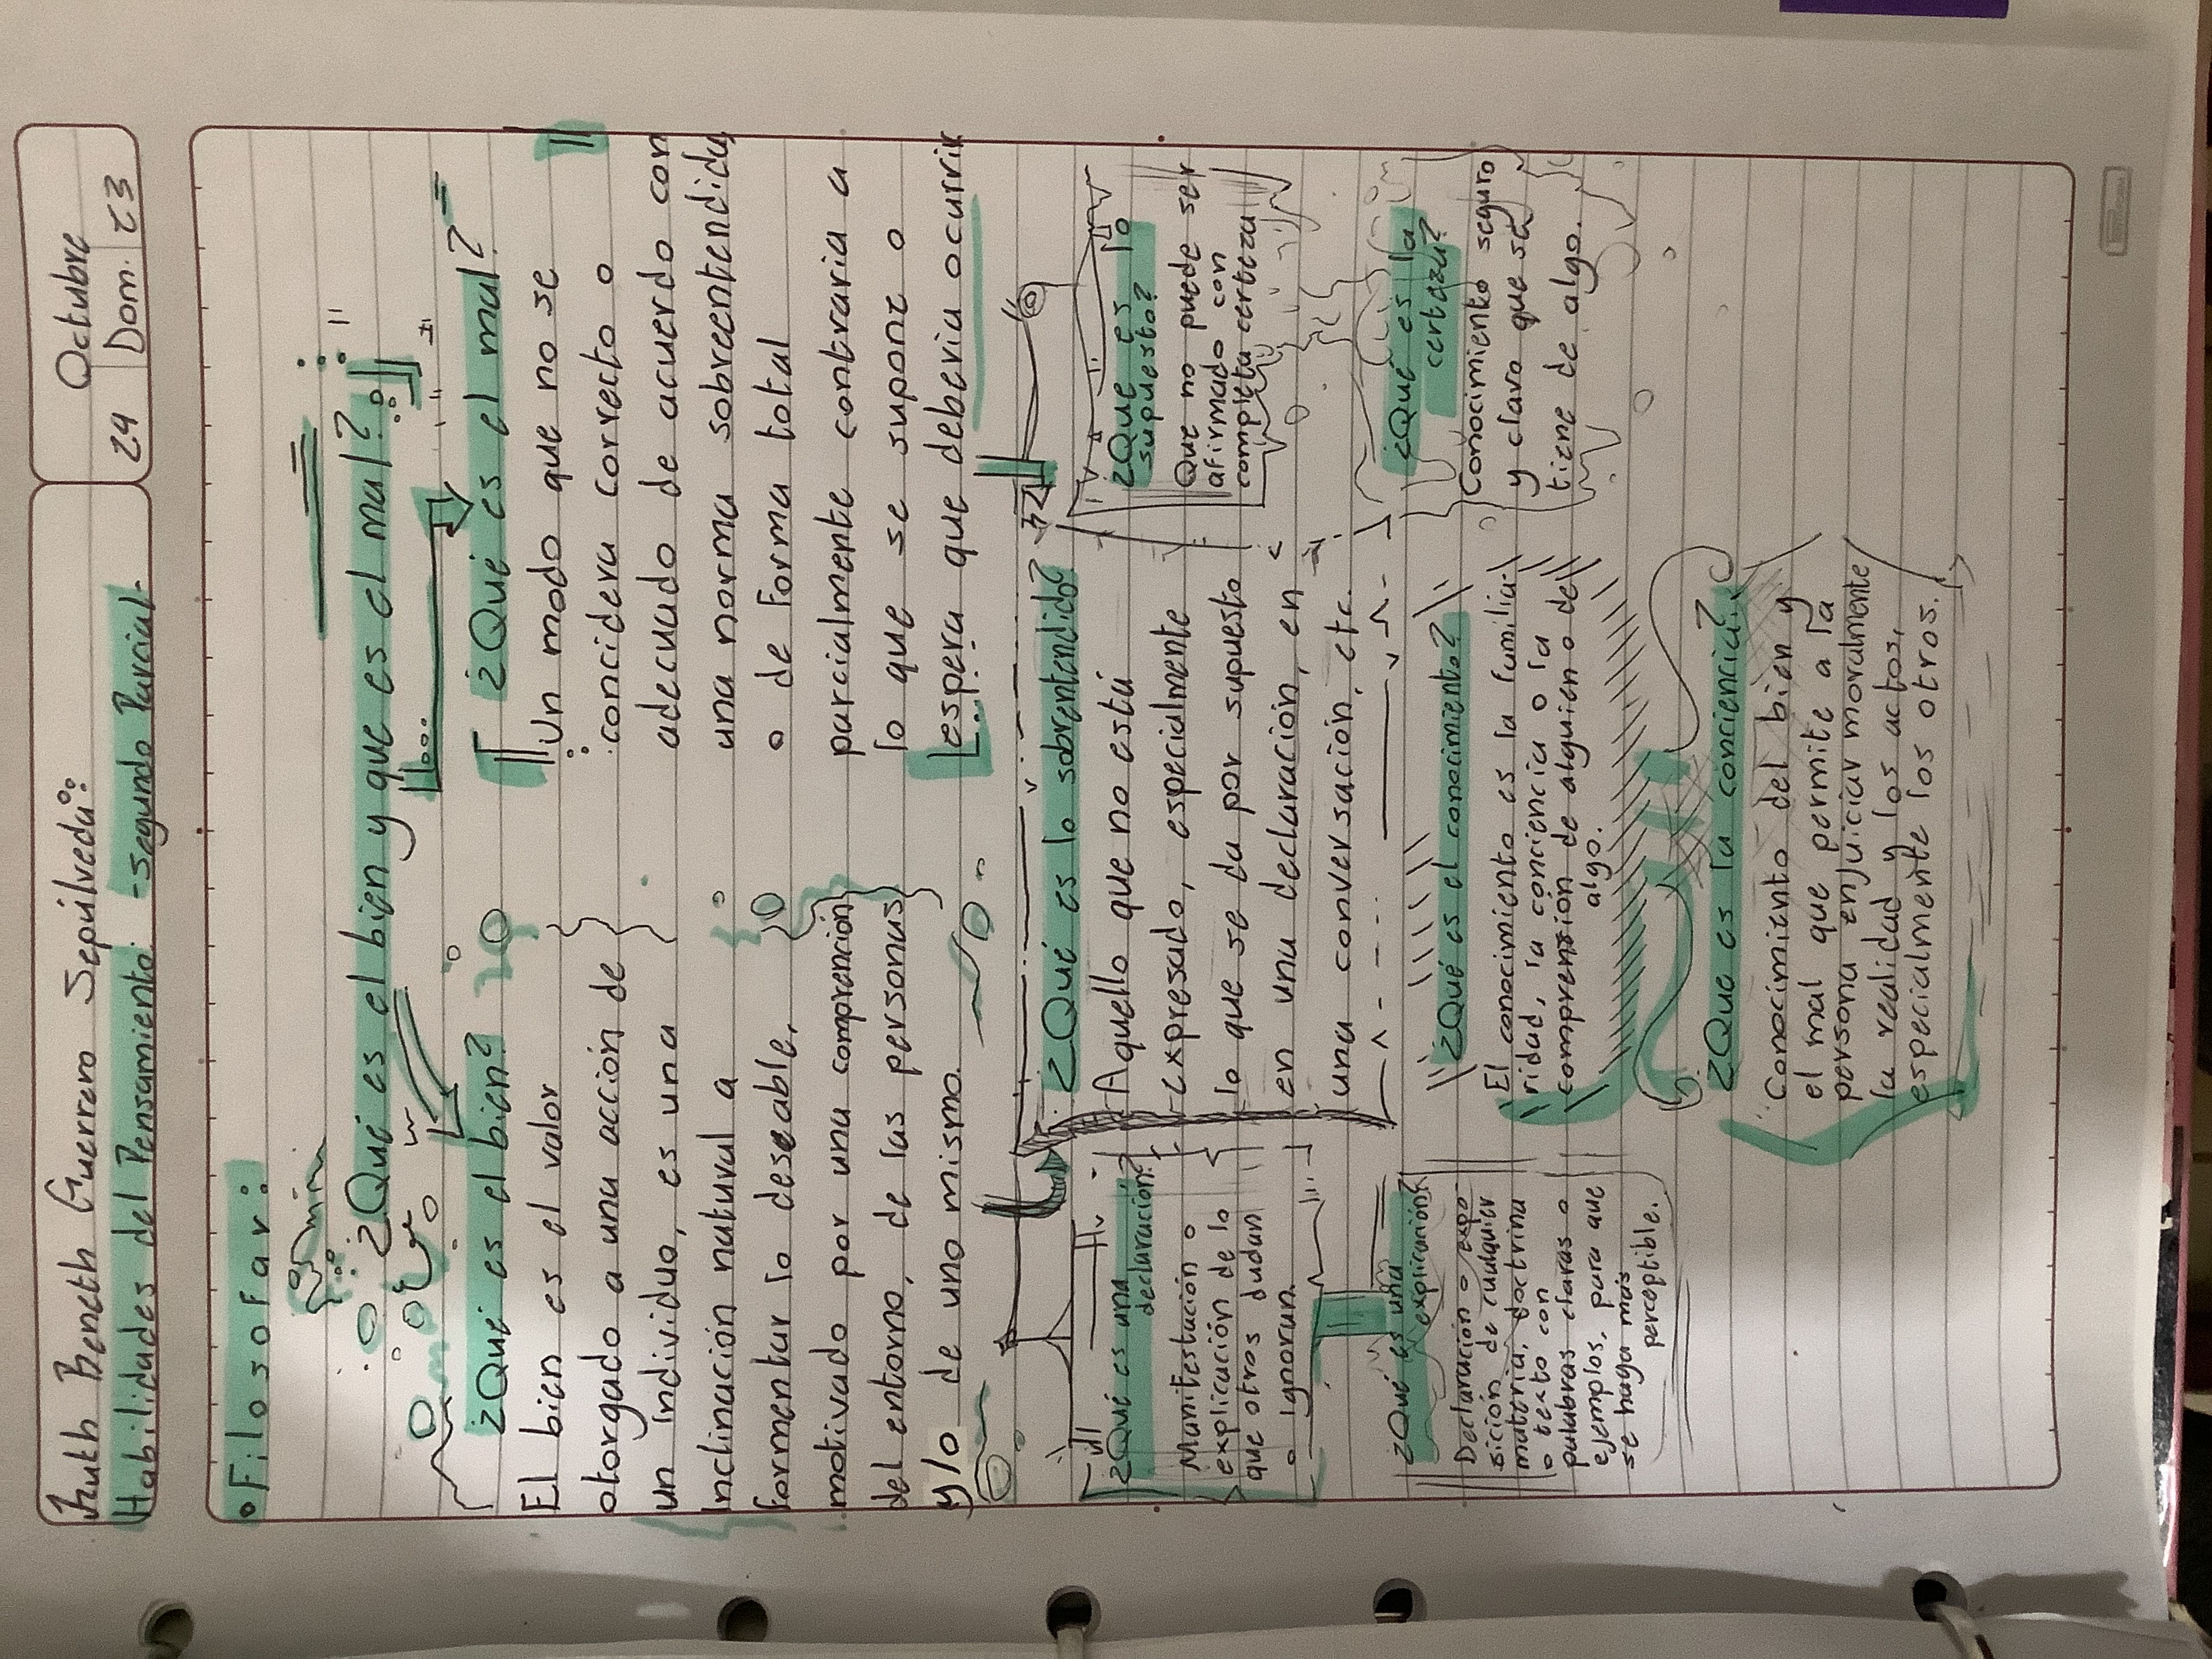 Guerrero Sepúlveda
Octubre
Habilidades del Pensamiento. -Segundo Parcial-
24 Dom. 23
• Filosofar:
¿Qué es el bien y que es el mal?
¿Qué es el bien?
El bien es el valor
otorgado a una acción de
un individuo, es una
inclinación natural a
formentar lo deseable,
motivado por una comprención
del entorno, de las personas
y/o de uno mismo.
¿Qué es el mal?
Un modo que no se
concidera correcto o
adecuado de acuerdo con
una norma sobreentendida
o de forma total
parcialmente contraria a
lo que se supone o
espera que debería ocurrir
¿Qué es una
declaración?
Manifestación o
explicación de lo
que otros dudan
o ignoran.
¿Qué es una
explicación?
Declaración o expo
sición de cualquier
materia, doctrina
o texto con
palabras claras o
ejemplos, para que
se haga más
perceptible.
¿Qué es lo sobrentendido?
Aquello que no está
expresado, especialmente
lo que se da por supuesto
en una declaración, en
una conversación, etc.
¿Qué es el conocimiento?
El conocimiento es la familia-
ridad, la conciencia o la
comprensión de alguien o de
algo.
¿Que es la conciencia?
Conocimiento del bien y
el mal que permite a la
persona enjuiciar moralmente
la realidad y los actos,
especialmente los otros.
¿Que es lo
supuesto?
Que no puede ser
afirmado con
completa certeza
¿Qué es la
certeza?
Conocimiento seguro
y claro que se
tiene de algo.